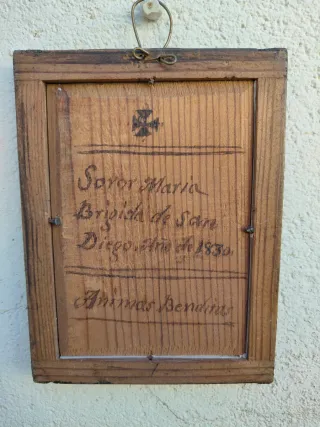 Soror Maria
Brigida de San
Diego. Año de 1830.
Animas Benditas